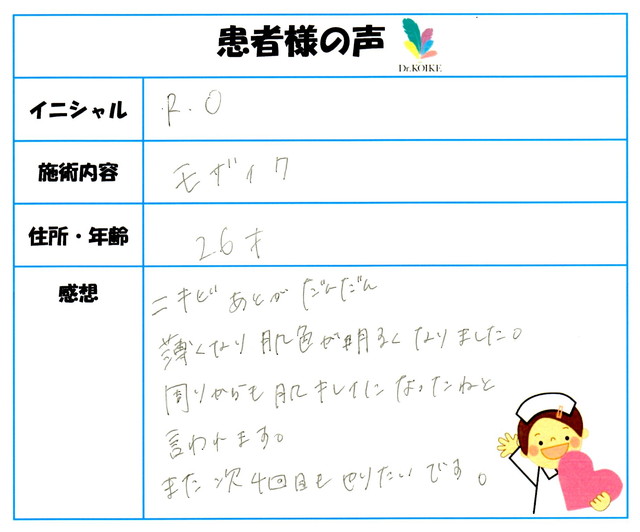 患者様の声
Dr.KOIKE
イニシャル R.O
施術内容 モザイク
住所・年齢 26才
感想 ニキビあとがだんだん
薄くなり肌色が明るくなりました。
周りからも肌キレイになったねと
言われます。
また次4回目もやりたいです。